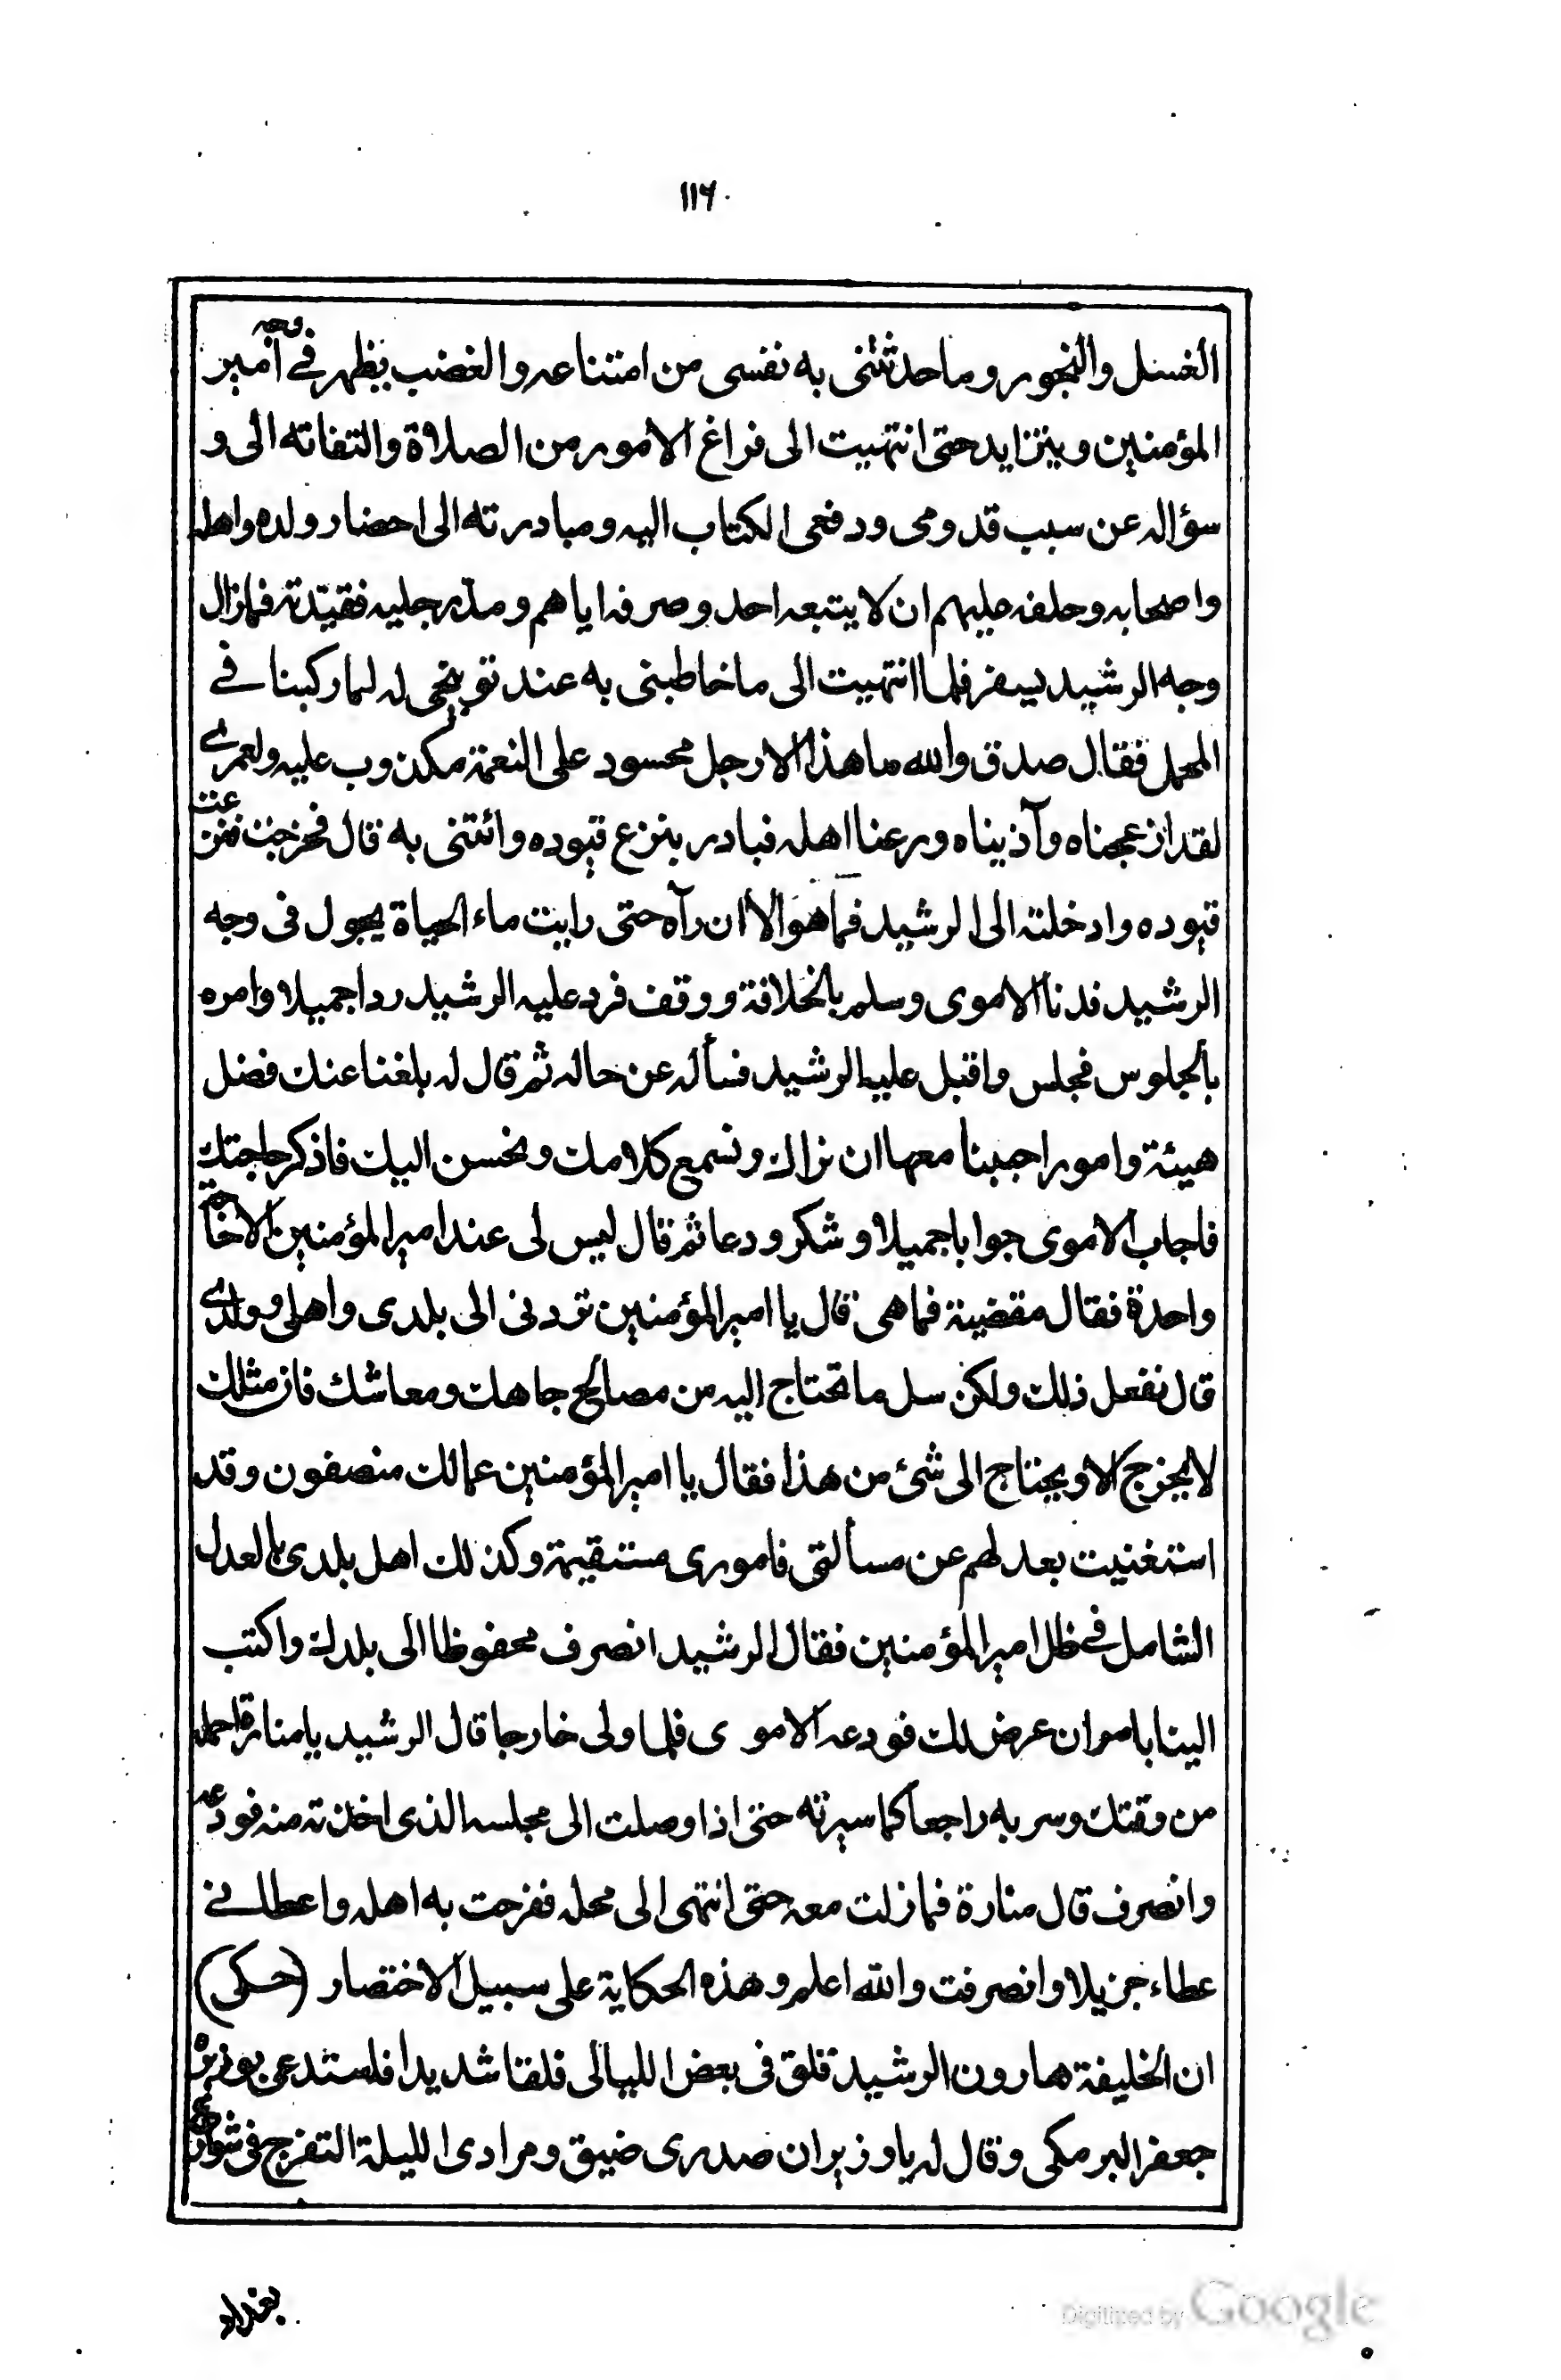 ١١٦
الغسل والبخور وما حدثتنى به نفسى من امتناعه والغضب يظهر في وجه امير
المؤمنين ويتزايد حتى انتهيت الى فراغ الاموى من الصلاة والتفاته الى و
سؤاله عن سبب قدومى ودفعى الكتاب اليه ومبادرته الى احضار ولده واهله
واصحابه وحلفه عليهم ان لا يتبعه احد وصرفه اياهم ومد رجليه فقيدته فما زال
وجه الرشيد يسفر فلما انتهيت الى ما خاطبنى به عند توبيخى له لما ركبنا في
المحمل فقال صدق والله ما هذا الا رجل محسود على النعمة مكذوب عليه ولعمري
لقد ازعجناه وآذيناه ورعنا اهله فبادر بنزع قيوده وائتنى به قال فخرجت فنزعت
قيوده وادخلته الى الرشيد فما هو الا ان رآه حتى رايت ماء الحياة يجول فى وجه
الرشيد فدنا الاموى وسلم بالخلافة ووقف فرد عليه الرشيد ردا جميلا وامره
بالجلوس فجلس واقبل عليه الرشيد فسأله عن حاله ثم قال له بلغنا عنك فضل
هيئة وامور احببنا معها ان نراك ونسمع كلامك ونحسن اليك فاذكر حاجتك
فاجاب الاموى جوابا جميلا وشكر ودعا ثم قال ليس لى عند امير المؤمنين الا حاجة
واحدة فقال مقضية فما هى قال يا امير المؤمنين تردنى الى بلدى واهلى وولدي
قال نفعل ذلك ولكن سل ما تحتاج اليه من مصالح جاهك ومعاشك فان مثلك
لا يخرج الا ويحتاج الى شئ من هذا فقال يا امير المؤمنين عمالك منصفون وقد
استغنيت بعدلهم عن مسألتى فامورى مستقيمة وكذلك اهل بلدى بالعدل
الشامل في ظل امير المؤمنين فقال الرشيد انصرف محفوظا الى بلدك واكتب
الينا بامر ان عرض لك فودعه الاموى فلما ولى خارجا قال الرشيد يا منارة احمله
من وقتك وسر به راجعا كما سيرته حتى اذا وصلت الى مجلسه الذى اخذته منه فودعه
وانصرف قال منارة فما زلت معه حتى انتهى الى محله ففرحت به اهله واعطاني
عطاء جزيلا وانصرفت والله اعلم وهذه الحكاية على سبيل الاختصار (حكى)
ان الخليفة هارون الرشيد قلق فى بعض الليالى قلقا شديدا فاستدعى بوزيره
جعفر البرمكى وقال له يا وزير ان صدرى ضيق ومرادى الليلة التفرج فى شوارع
بغداد
Digitized by Google